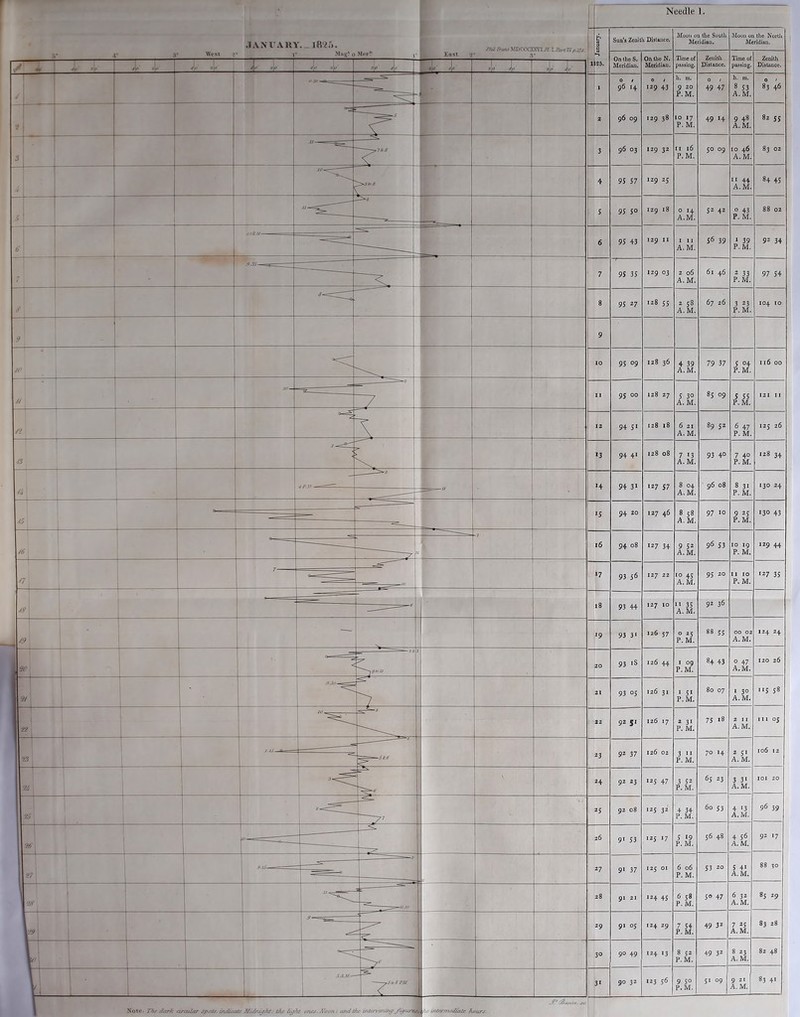 Needle 1.
JANUARY._1825.
Phil. Trans. MDCCCXXVI. Pl. I. Part IV. p.
5° 4° 3° West 2° 1° Mag.c o Mer.n 1° East 2° 3°
January, 1825.
Sun's Zenith Distance.
Moon on the South Meridian.
Moon on the North Meridian.
On the S. Meridian.
On the N. Meridian.
Time of passing.
Zenith Distance.
Time of passing.
Zenith Distance.
o / o / h. m. o / h. m. o /
1 96 14 129 43 9 20 P.M. 49 47 8 53 A.M. 83 46
2 96 09 129 38 10 17 P.M. 49 14 9 48 A.M. 82 55
3 96 03 129 32 11 16 P.M. 50 09 10 46 A.M. 83 02
4 95 57 129 25 11 44 A.M. 84 45
5 95 50 129 18 0 14 A.M. 52 42 0 43 P.M. 88 02
6 95 43 129 11 1 11 A.M. 56 39 1 39 P.M. 92 34
7 95 35 129 03 2 06 A.M. 61 46 2 33 P.M. 97 54
8 95 27 128 55 2 58 A.M. 67 26 3 23 P.M. 104 10
9
10 95 09 128 36 4 39 A.M. 79 37 5 04 P.M. 116 00
11 95 00 128 27 5 30 A.M. 85 09 5 55 P.M. 121 11
12 94 51 128 18 6 21 A.M. 89 52 6 47 P.M. 125 26
13 94 41 128 08 7 13 A.M. 93 40 7 40 P.M. 128 34
14 94 31 127 57 8 04 A.M. 96 08 8 31 P.M. 130 24
15 94 20 127 46 8 58 A.M. 97 10 9 25 P.M. 130 43
16 94 08 127 34 9 52 A.M. 96 53 10 19 P.M. 129 44
17 93 56 127 22 10 45 A.M. 95 20 11 10 P.M. 127 35
18 93 44 127 10 11 35 A.M. 92 36
19 93 31 126 57 0 25 P.M. 88 55 00 02 A.M. 124 24
20 93 18 126 44 1 09 P.M. 84 43 0 47 A.M. 120 26
21 93 05 126 31 1 51 P.M. 80 07 1 30 A.M. 115 58
22 92 51 126 17 2 31 P.M. 75 18 2 11 A.M. 111 05
23 92 37 126 02 3 11 P.M. 70 14 2 51 A.M. 106 12
24 92 23 125 47 3 52 P.M. 65 23 3 31 A.M. 101 20
25 92 08 125 32 4 34 P.M. 60 53 4 13 A.M. 96 39
26 91 53 125 17 5 19 P.M. 56 48 4 56 A.M. 92 17
27 91 37 125 01 6 06 P.M. 53 20 5 41 A.M. 88 30
28 91 21 124 45 6 58 P.M. 50 47 6 32 A.M. 85 29
29 91 05 124 29 7 54 P.M. 49 32 7 25 A.M. 83 28
30 90 49 124 13 8 52 P.M. 49 32 8 23 A.M. 82 48
31 90 32 123 56 9 50 P.M. 51 09 9 21 A.M. 83 41
Note. The dark circular spots indicate Midnight; the light ones Noon; and the intervening figures, the intermediate hours.